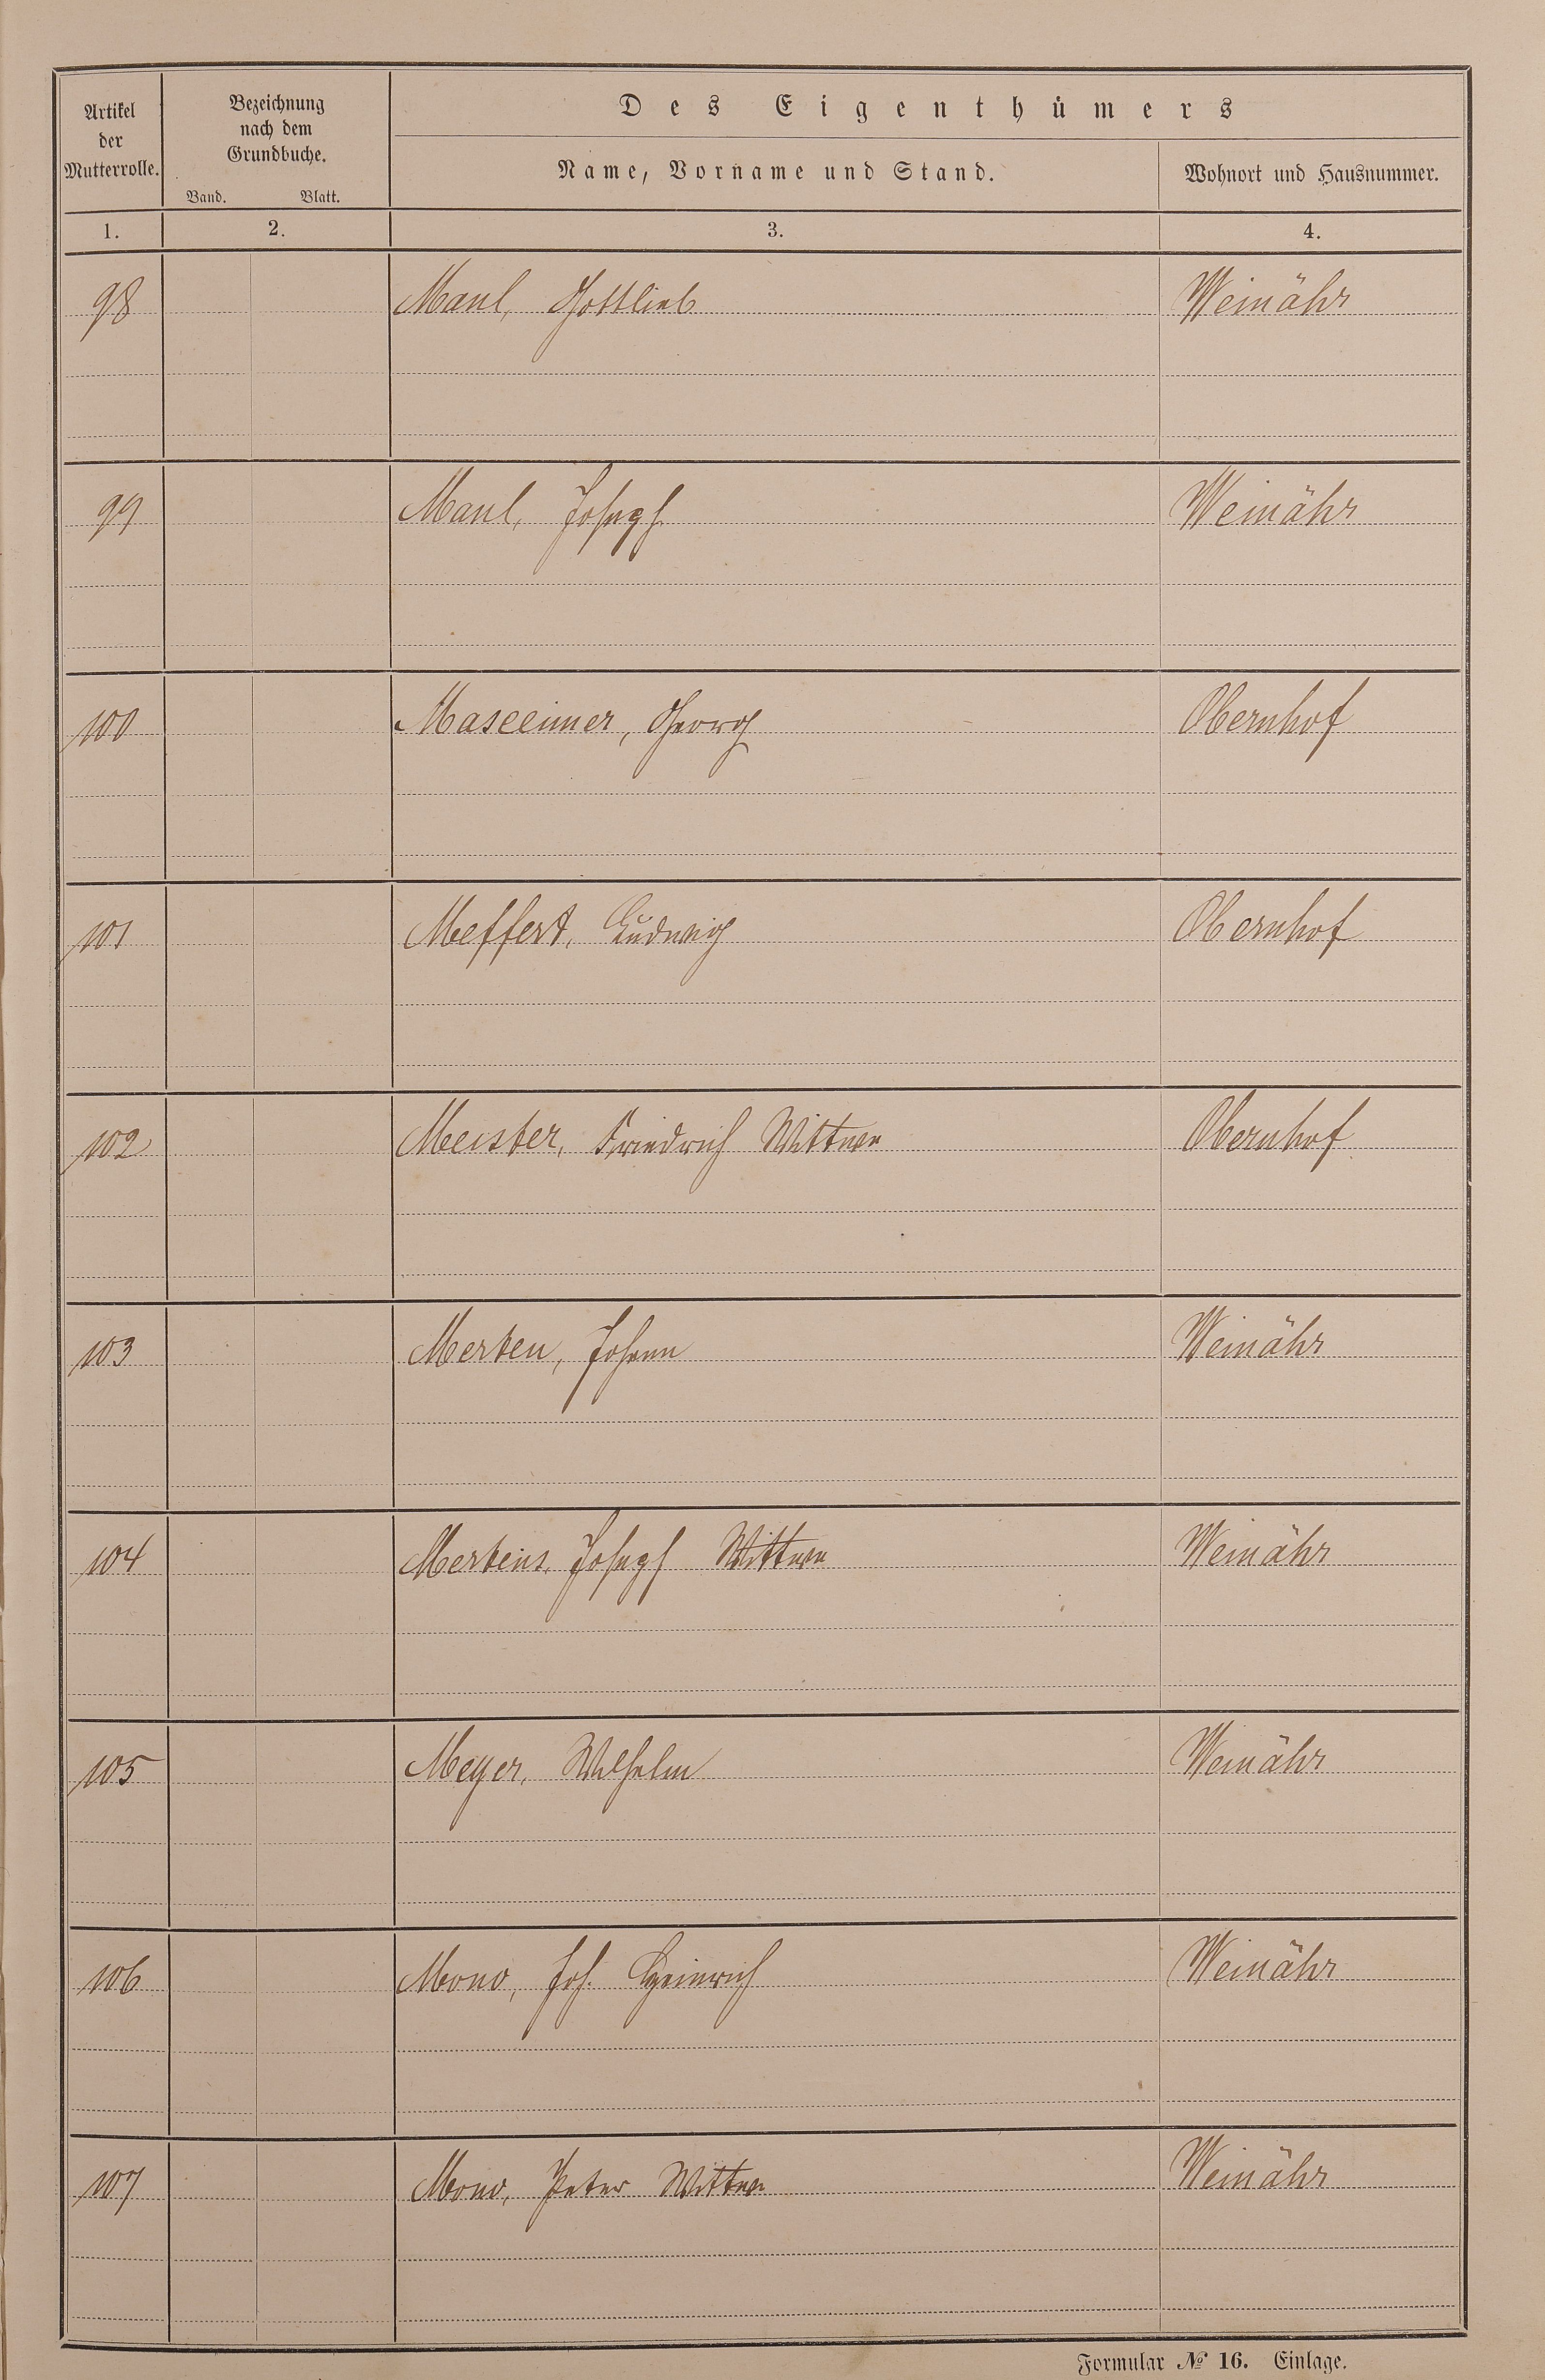 Artikel der Mutterrolle.
Bezeichnung nach dem Grundbuche.
Band. Blatt.
Des Eigenthümers
Name, Vorname und Stand.
Wohnort und Hausnummer.
1. 2. 3. 4.
98 Maul, Gottlieb Weinähr
99 Maul, Joseph Weinähr
100 Masceimer, Georg Obernhof
101 Meffert, Ludwig Obernhof
102 Meister, Friedrich Wittwe Obernhof
103 Merten, Johann Weinähr
104 Mertens, Joseph Wittwe Weinähr
105 Meyer, Wilhelm Weinähr
106 Mono, Joh. Heinrich Weinähr
107 Mono, Peter Wittwe Weinähr
Formular № 16. Einlage.